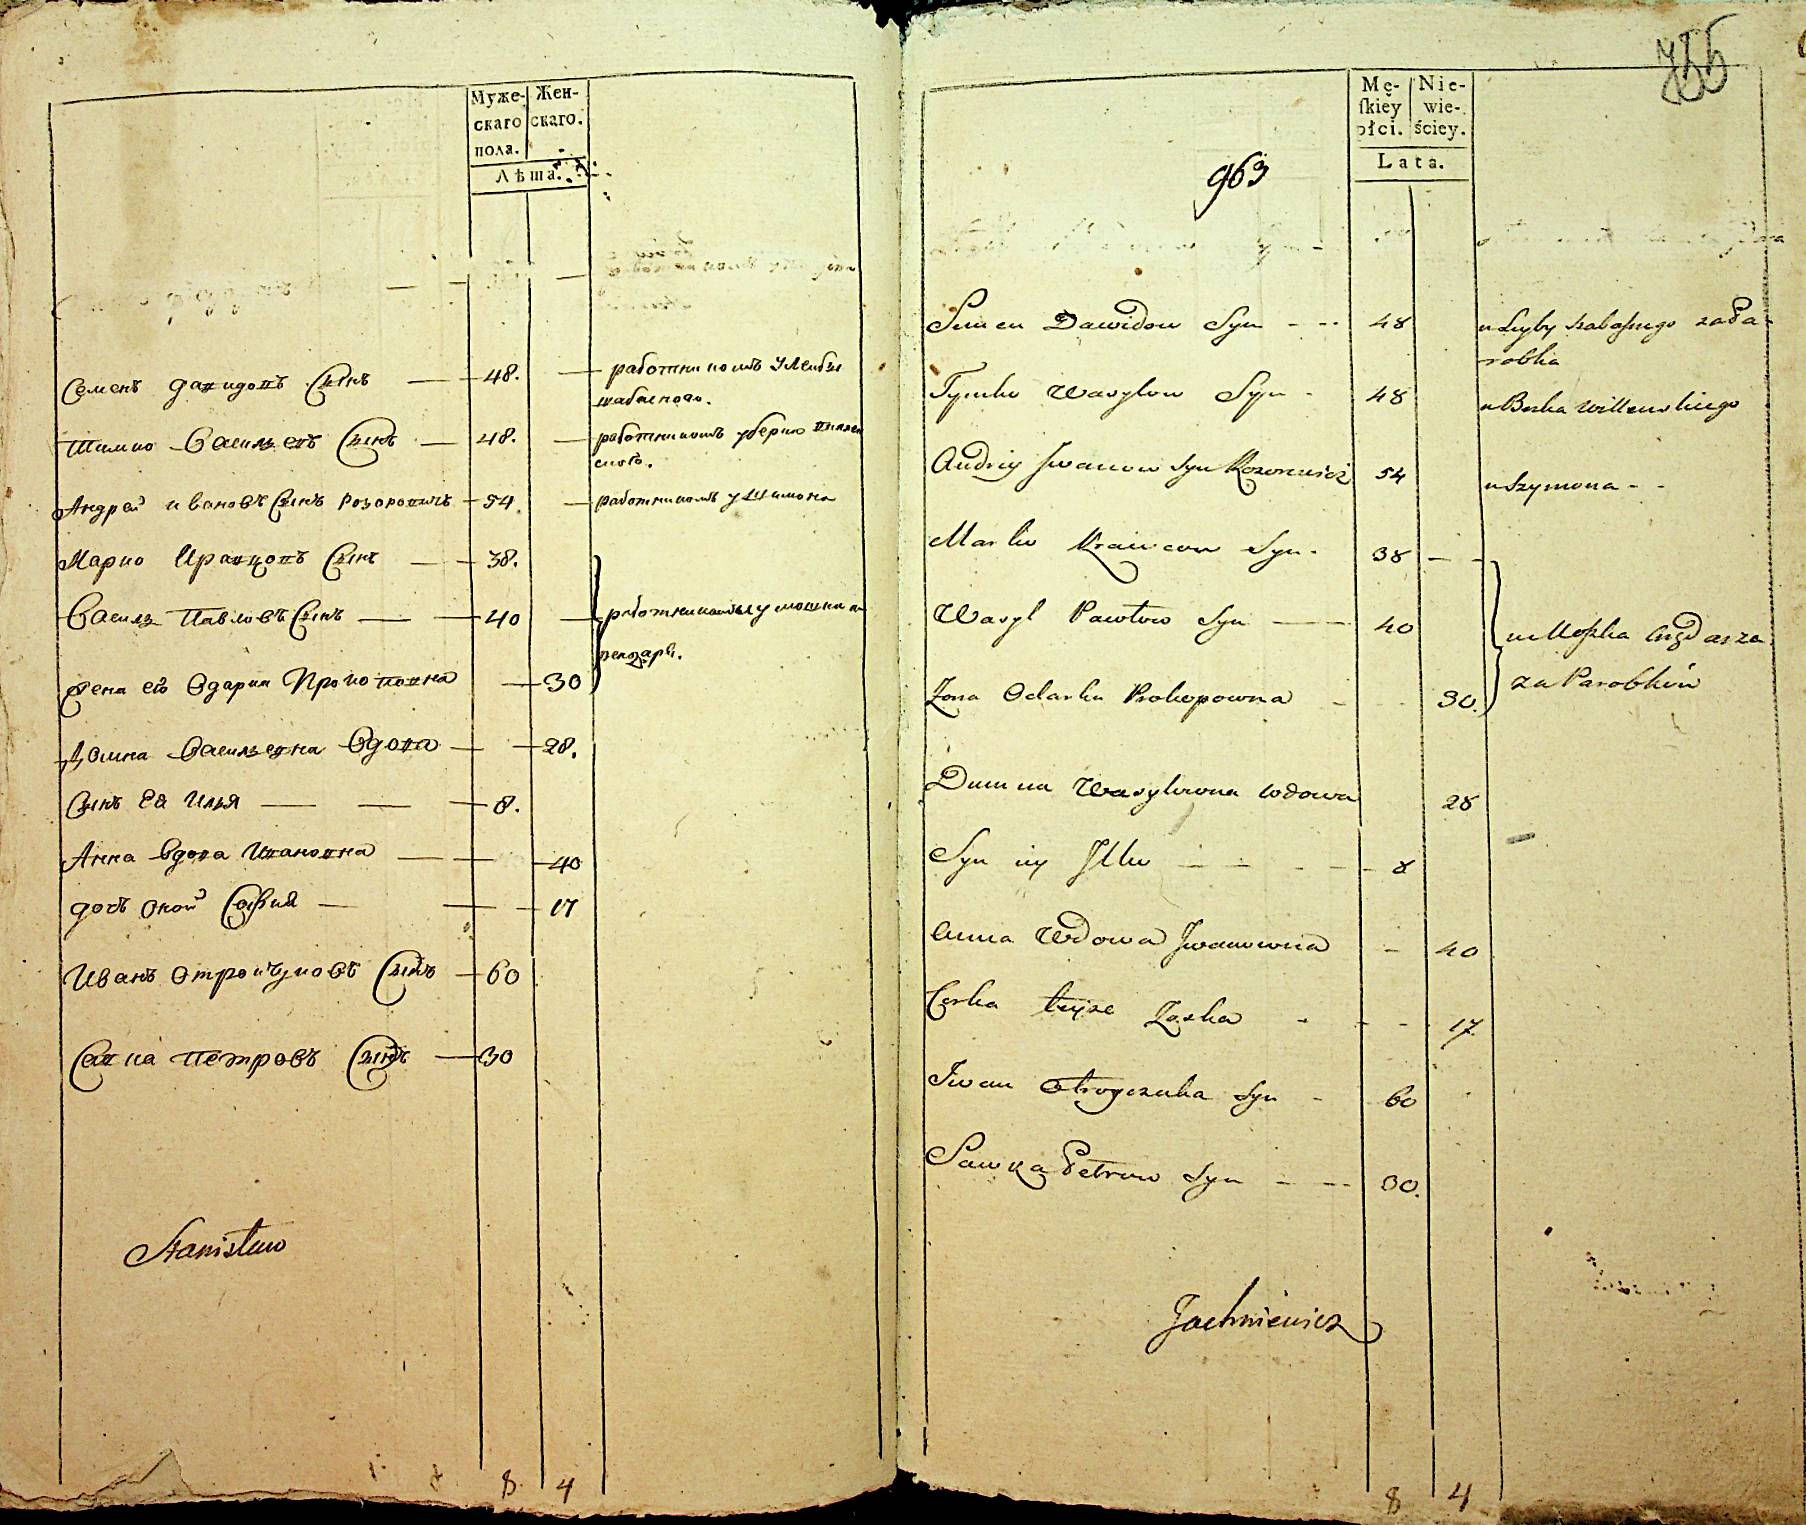 Муже-
скаго
пола.
Жен-
скаго.
Лѣта.
Семенъ Давидовъ Сынъ — 48. — работникомъ у Лейбы
шабасного.
Тимко Васильевъ Сынъ — 48. — работникомъ у берка
Андрей ивановъ Сынъ розоровичъ — 54. — работникомъ у Шимона
Марко Кравцовъ Сынъ — 38.
Василь Павловъ Сынъ — 40 — работникомъ у мошка
жена его Одарка Прокоповна — 30
Домна Васильевна вдова — 28.
Сынъ Ея Илья — 8.
Анна вдова Ивановна — 40
дочь оной София — 17
Иванъ отройчуковъ Сынъ — 60
Савка Петровъ Сынъ — 30
Stanisław
8 4
963
Mę-
ſkiey
płci.
Nie-
wie-
ściey.
Lata.
Semen Dawidow Syn - - 48 u Leyby szabaſnego za Pa-
robka
Tymko Wasylow Syn - 48 u Berka
Andriy Jwanow Syn Rozorowicz 54 u Szymona - -
Marko Krawcow Syn - 38 — -
Wasyl Pawłow Syn — 40 u Moſzka
Zona Odarka Prokopowna - 30. za Parobków
Dumna Wasylowna wdowa 28
Syn iey Jlko - - - - 8
Anna Wdowa Jwanowna - 40
Corka teyze Zoſka - - - 17
Jwan Otroyczuka Syn - 60
Sawka Petrow Syn - - 30.
Jachniewicz
8 4